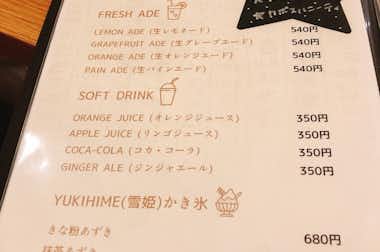 FRESH ADE
LEMON ADE (生レモネード) 540円
GRAPEFRUIT ADE (生グレープエード) 540円
ORANGE ADE (生オレンジエード) 540円
PAIN ADE (生パインエード) 540円
SOFT DRINK
ORANGE JUICE (オレンジジュース) 350円
APPLE JUICE (リンゴジュース) 350円
COCA-COLA (コカ・コーラ) 350円
GINGER ALE (ジンジャエール) 350円
YUKIHIME(雪姫)かき氷
きな粉あずき 680円
抹茶あずき